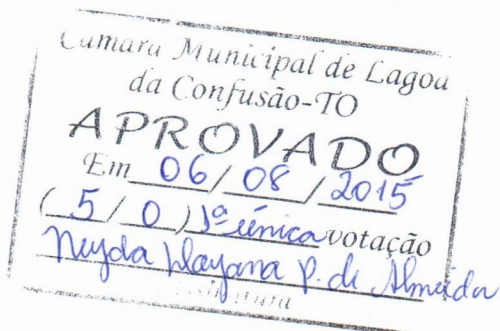 Câmara Municipal de Lagoa
da Confusão-TO
APROVADO
Em 06/08/2015
(5/0) 1ª única votação
Neyda Nayana P. de Almeida
Assinatura